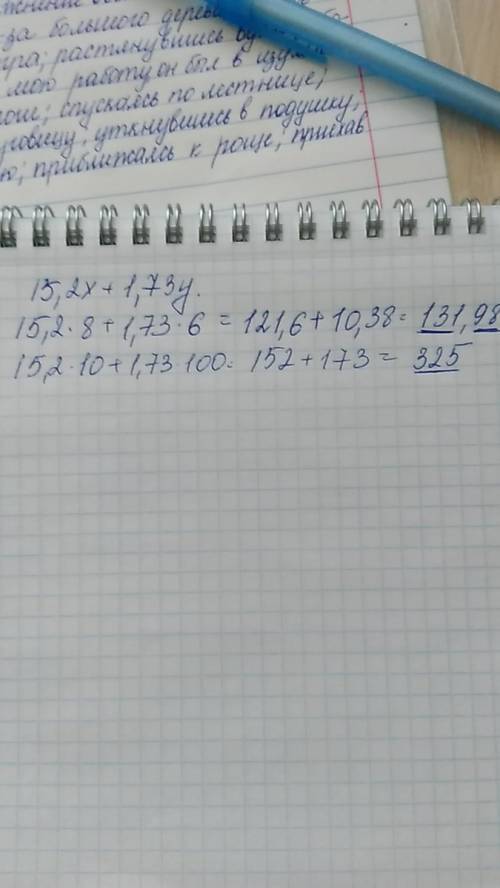 за большого
растянувшись
мою работу он был в
спускаясь по лестнице)
уткнувшись в подушку,
приближаясь к роще, приехав
15,2x + 1,73y.
15,2·8 + 1,73·6 = 121,6 + 10,38 = 131,98
15,2·10 + 1,73 100 = 152 + 173 = 325